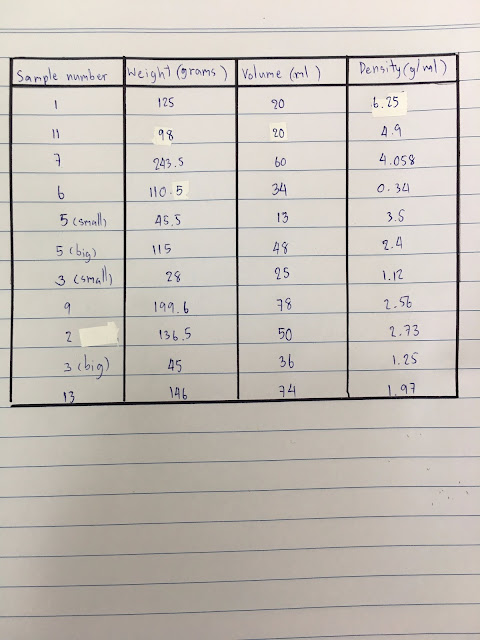 Sample number Weight (grams) Volume (ml) Density (g/ml)
1 125 20 6.25
11 98 20 4.9
7 243.5 60 4.058
6 110.5 34 0.34
5 (small) 45.5 13 3.5
5 (big) 115 48 2.4
3 (small) 28 25 1.12
9 199.6 78 2.56
2 136.5 50 2.73
3 (big) 45 36 1.25
13 146 74 1.97